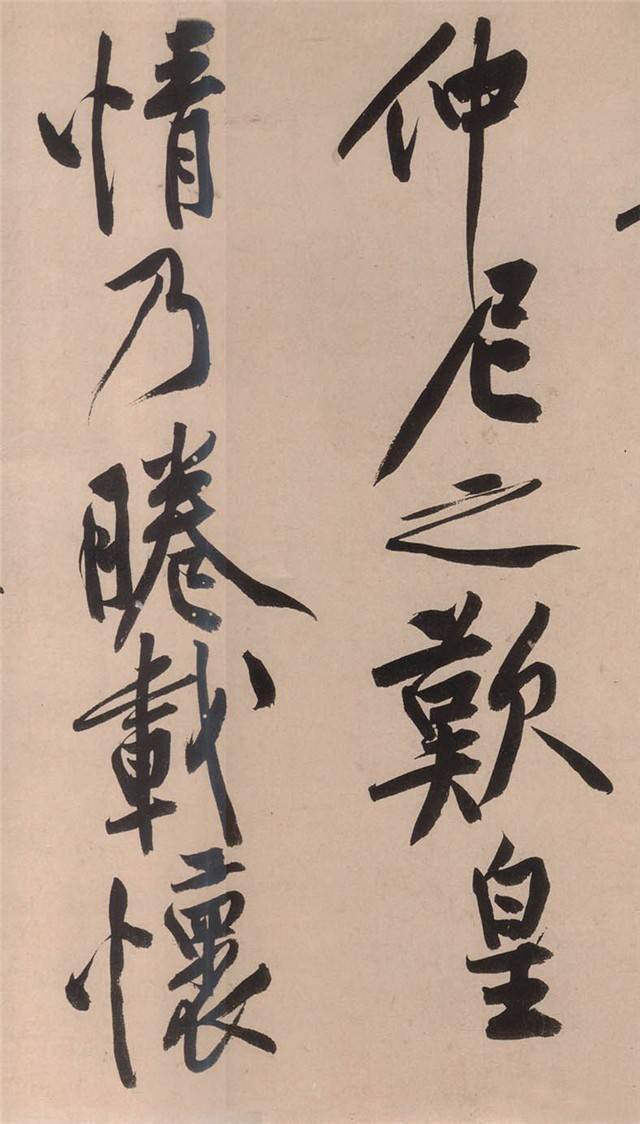 仲尼之歎皇
情乃睠載懷